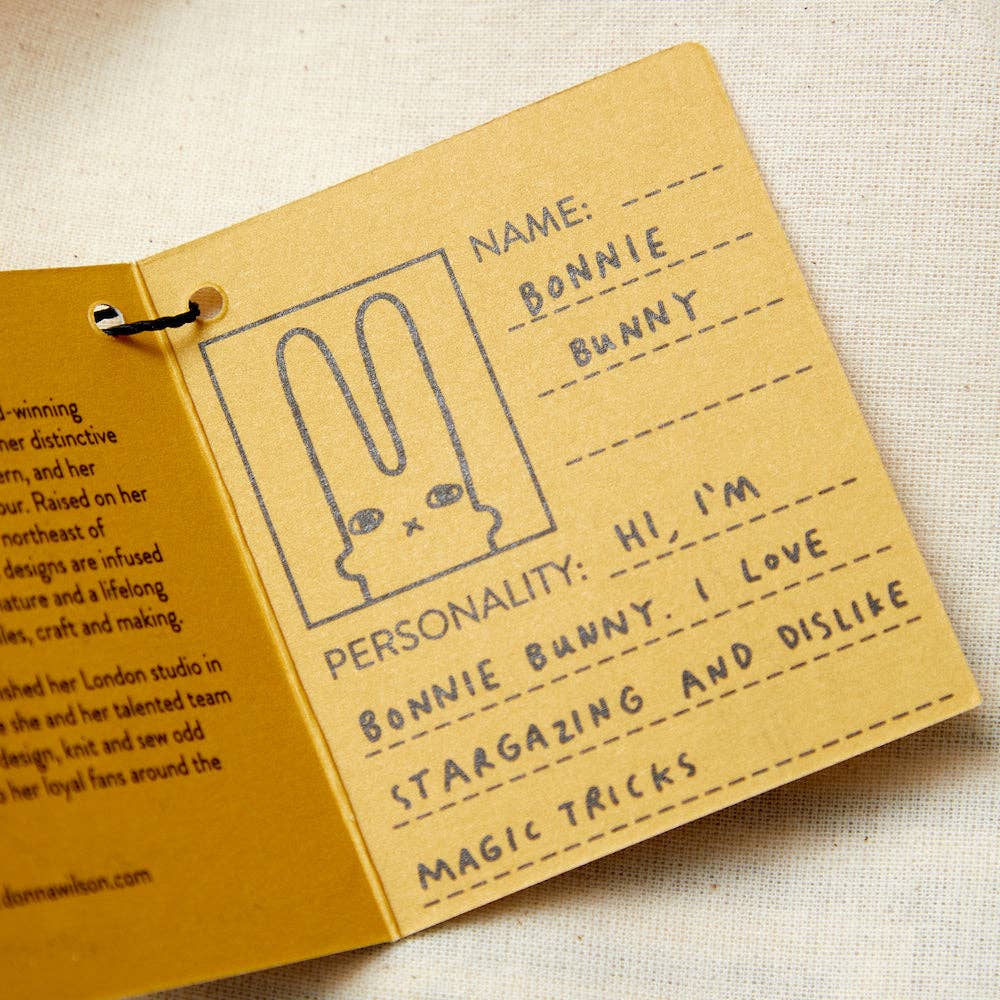 -winning
her distinctive
ern, and her
our. Raised on her
northeast of
designs are infused
nature and a lifelong
les, craft and making.
ished her London studio in
she and her talented team
design, knit and sew odd
her loyal fans around the
donnawilson.com
NAME:
BONNIE
BUNNY
PERSONALITY: HI, I'M
BONNIE BUNNY. I LOVE
STARGAZING AND DISLIKE
MAGIC TRICKS